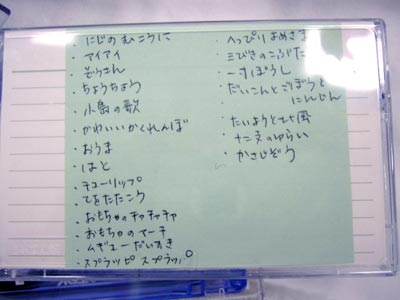 ・にじのむこうに
・アイアイ
・ぞうさん
・ちょうちょう
・小鳥の歌
・かわいいかくれんぼ
・おうま
・はと
・チューリップ
・てをたたこう
・おもちゃのチャチャチャ
・おもちゃのマーチ
・ムギューだいすき
・スプラッピ スプラッパ
・へっぴりよめさま
・三びきのこぶた
・一寸ぼうし
・だいこんとごぼうと
にんじん
・たいようと北風
・十二支のゆらい
・かさじぞう